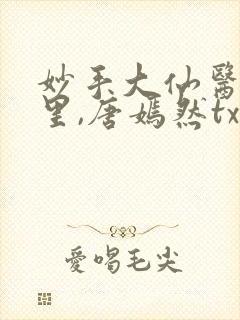 妙手大仙醫
里,唐嫣然tx
愛喝毛尖